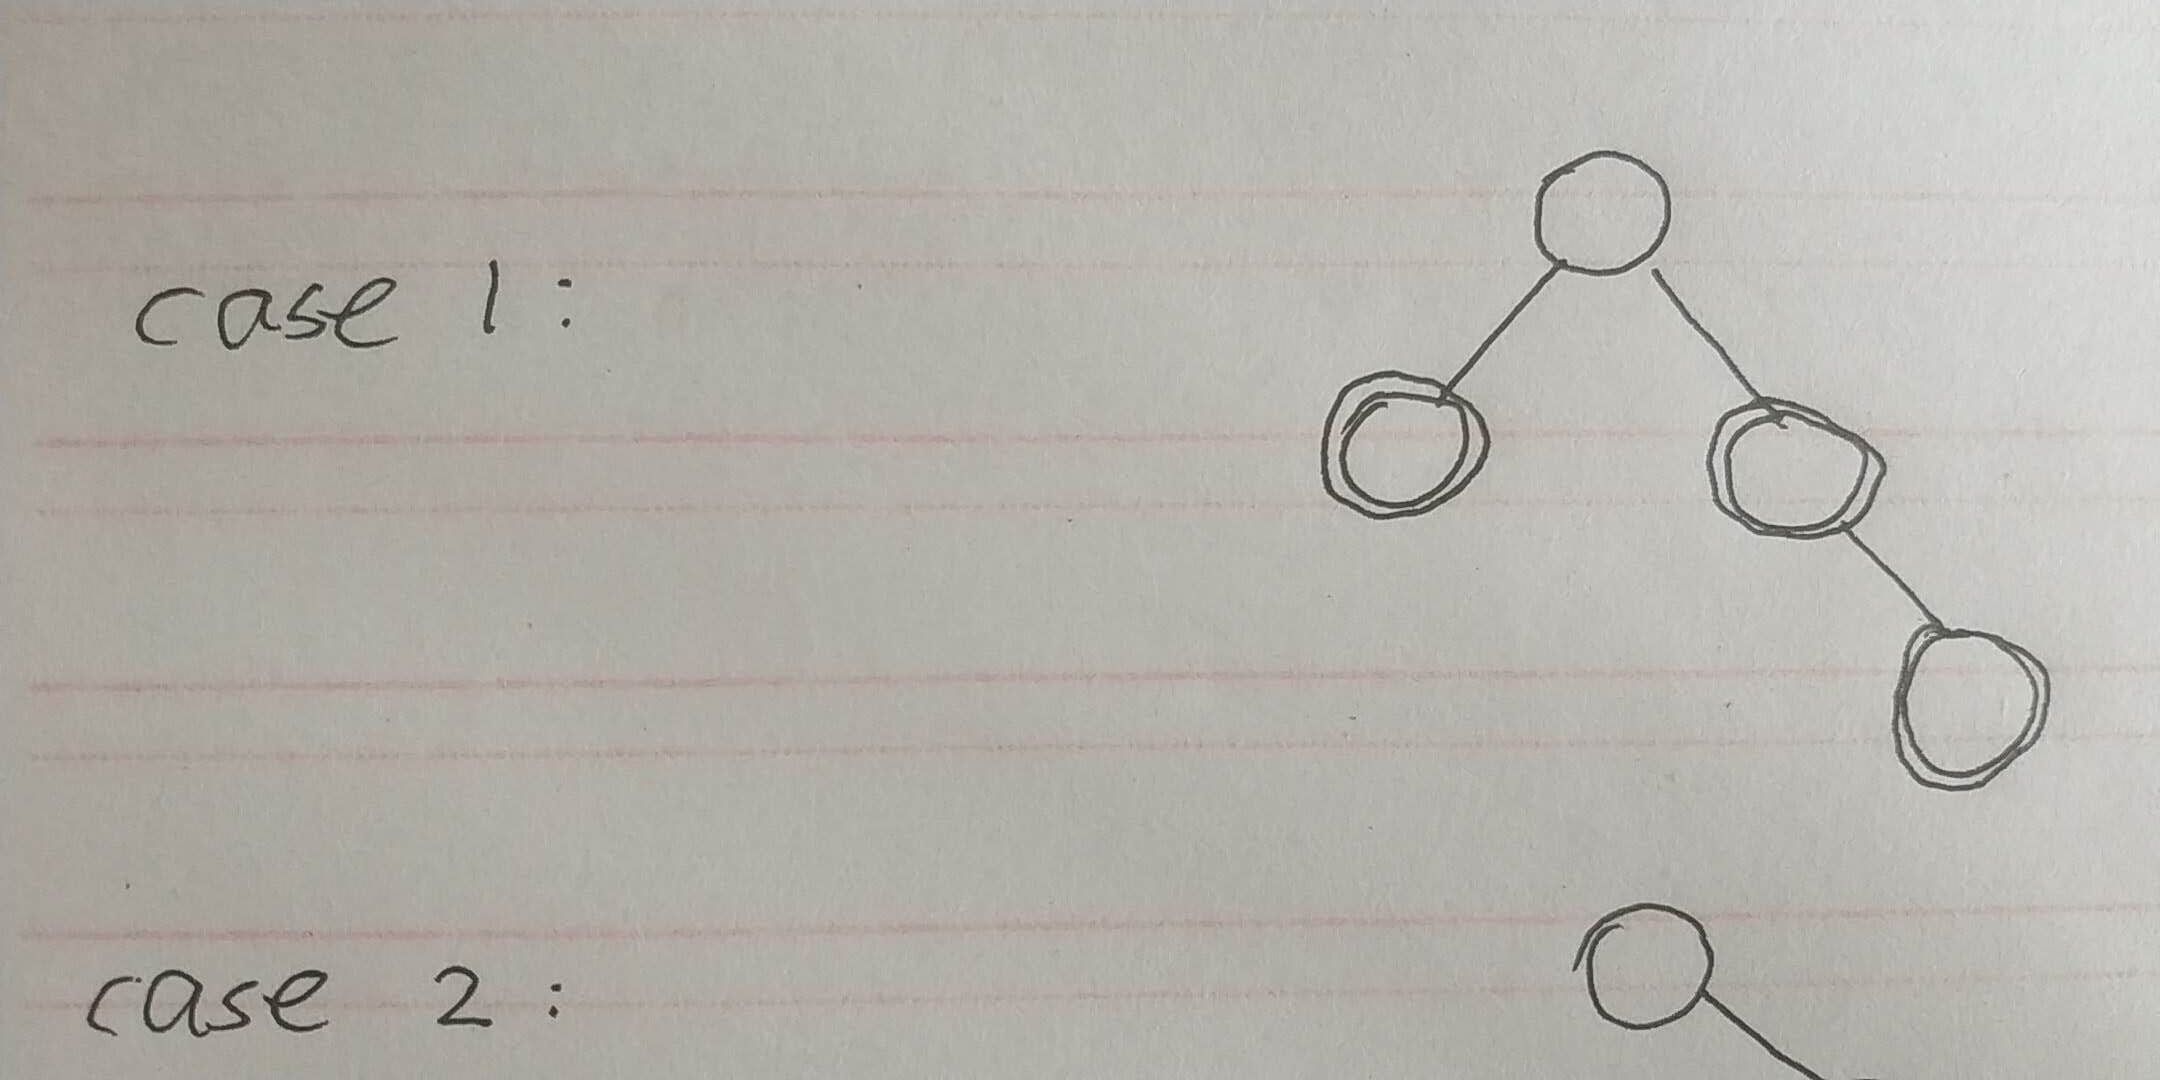 case 1:
case 2: